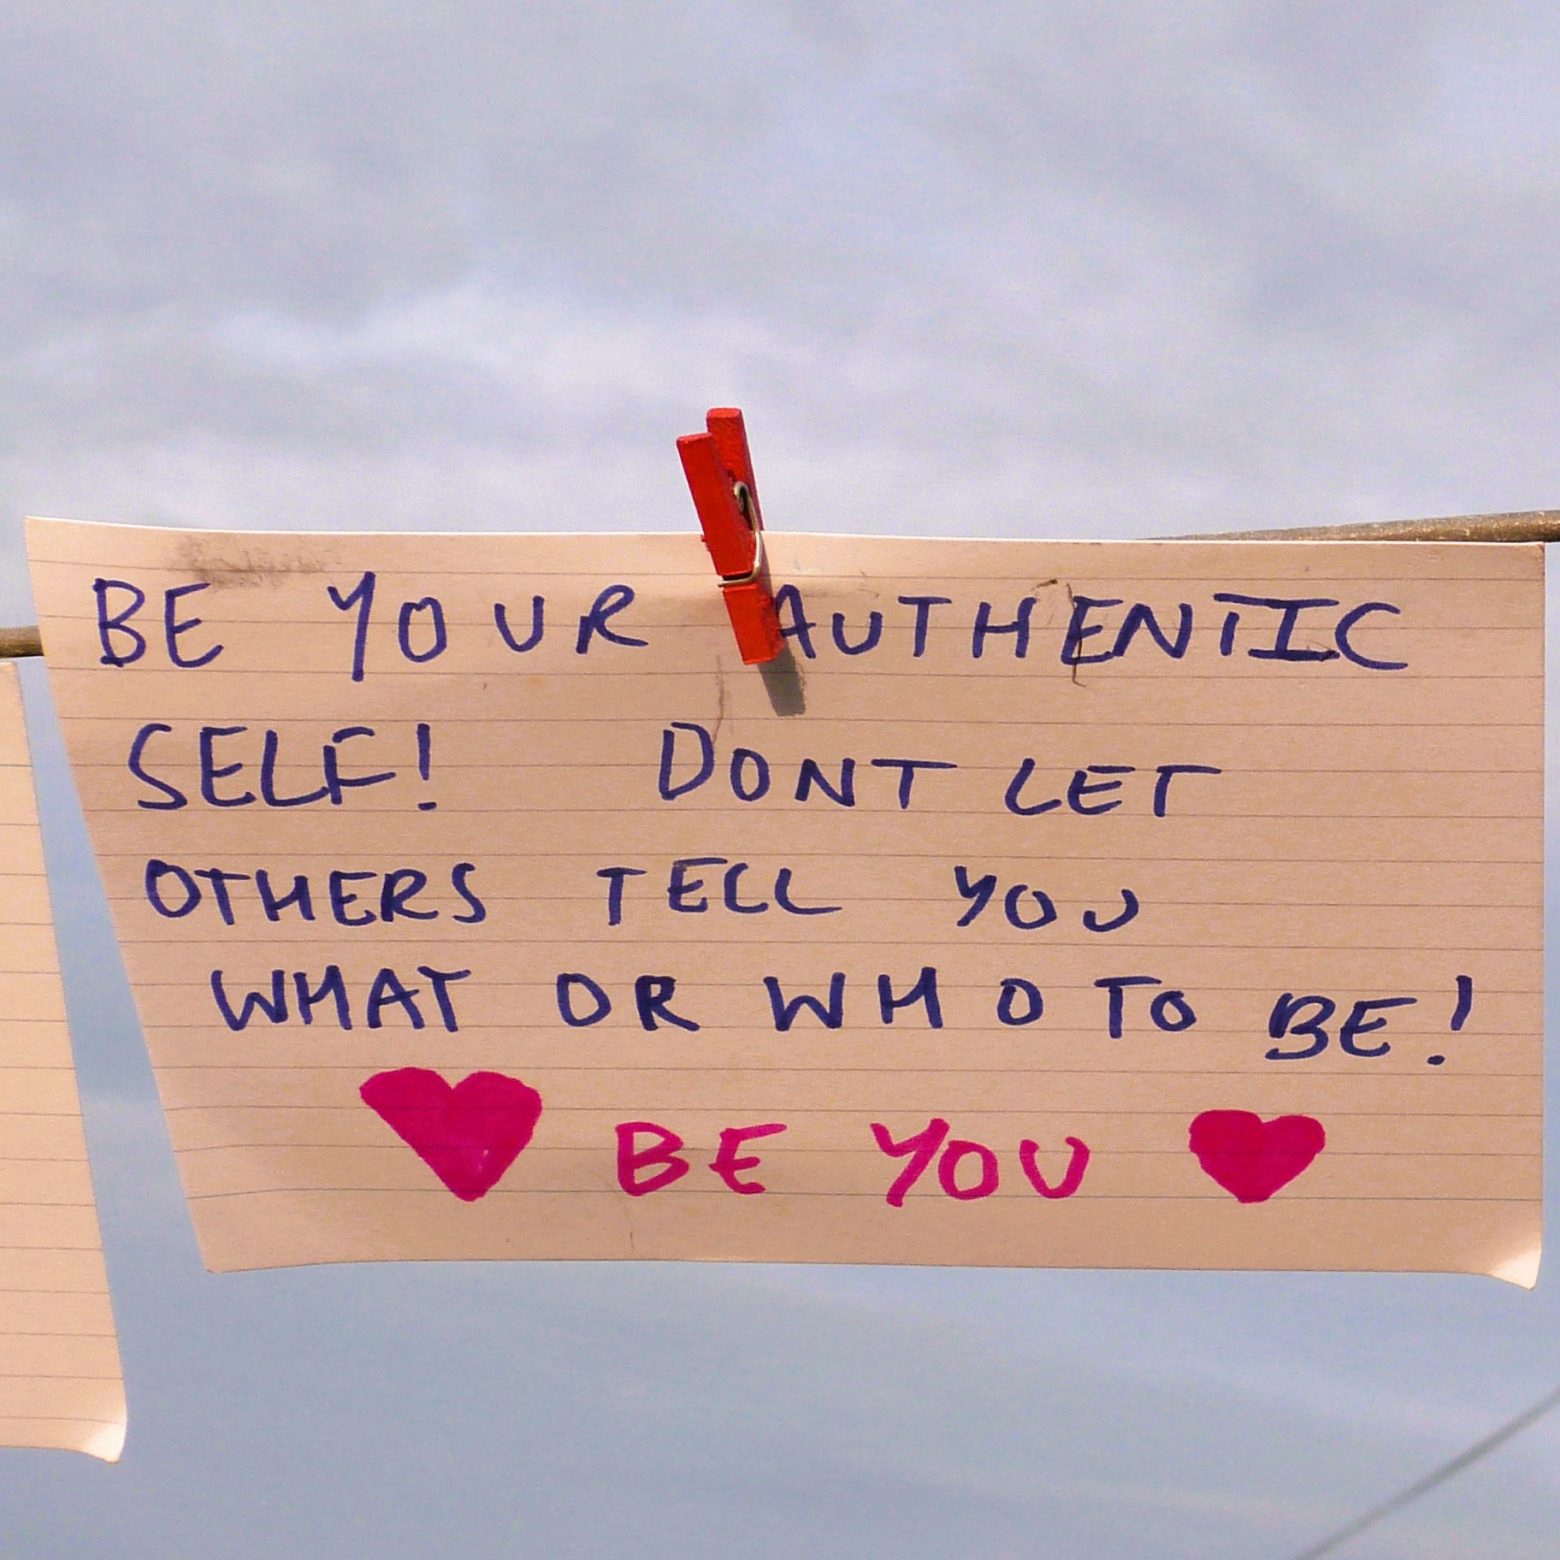 BE YOUR AUTHENTIC
SELF! DONT LET
OTHERS TELL YOU
WHAT OR WHO TO BE!
BE YOU